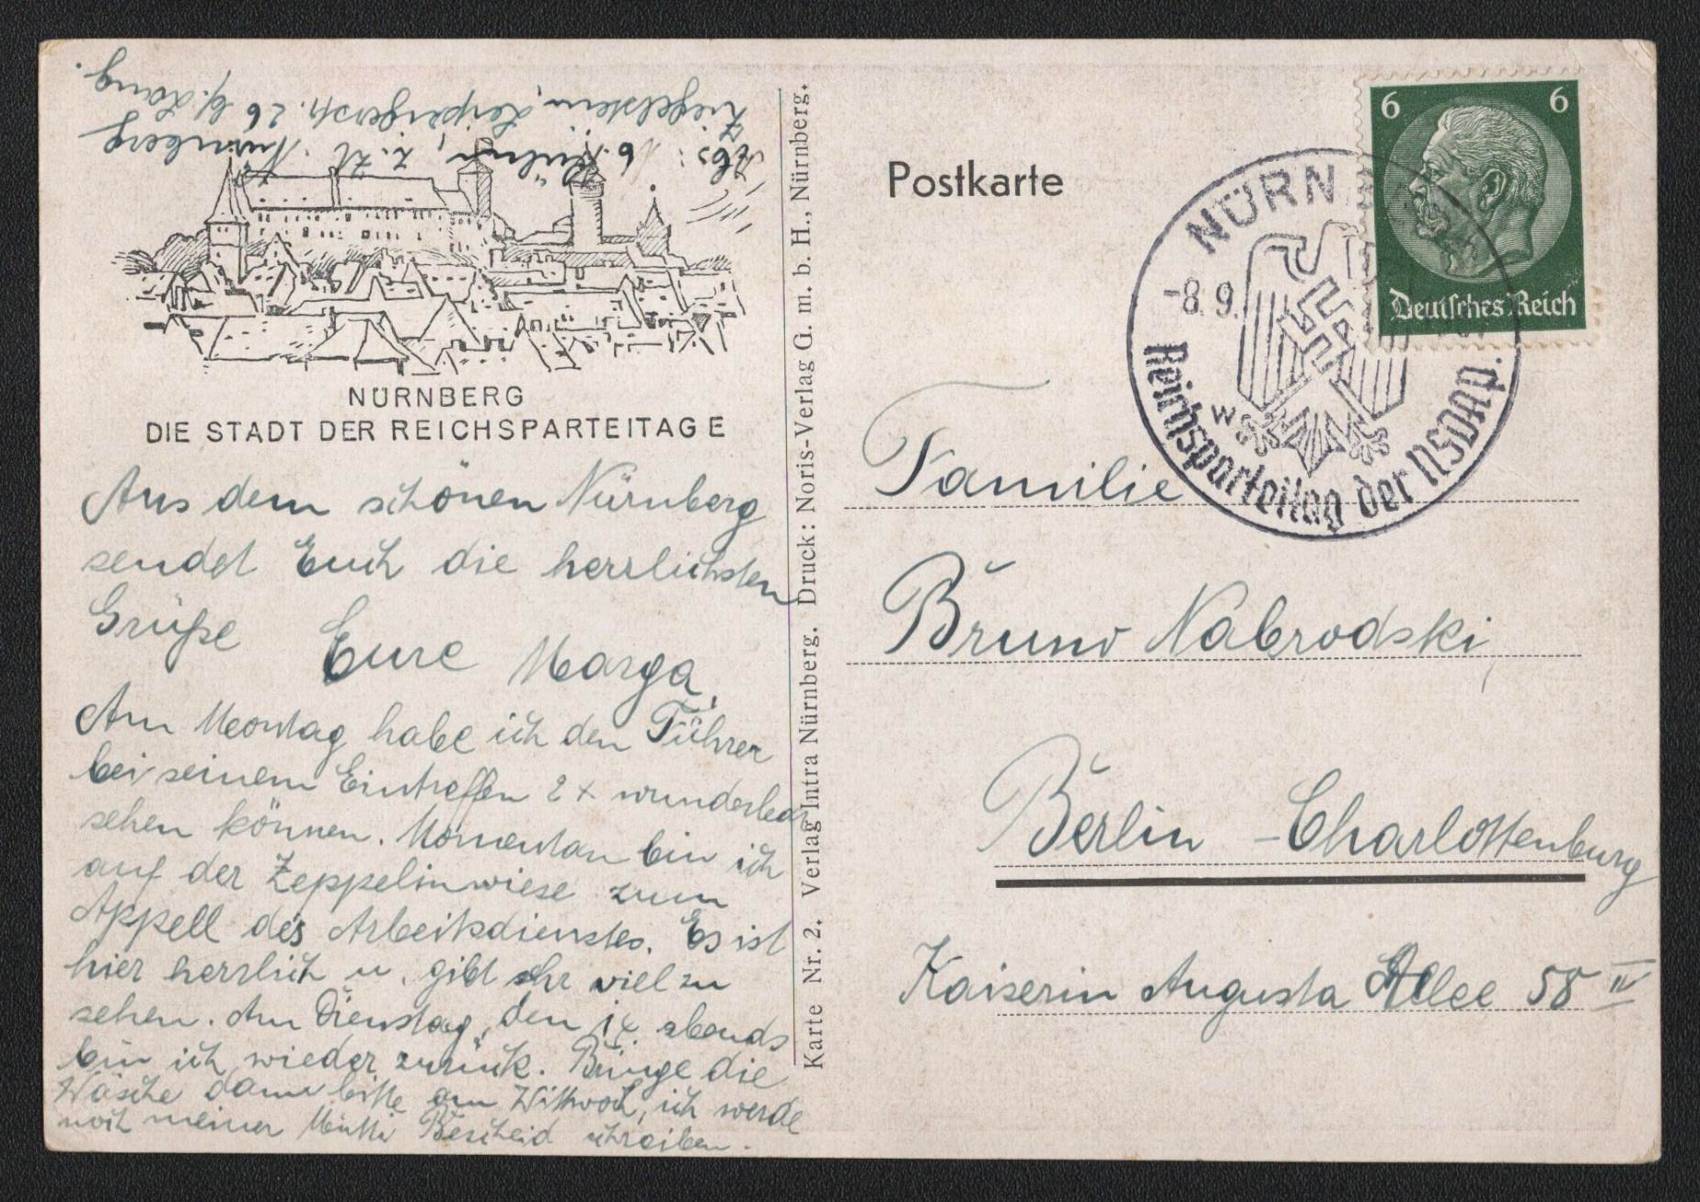 Abs: M. Kühn, z. Zt. Nürnberg
Ziegelstein, Leipzigerstr. 26 b/. Lang.
NÜRNBERG
DIE STADT DER REICHSPARTEITAGE
Aus dem schönen Nürnberg
sendet Euch die herrlichsten
Grüße Eure Marga.
Am Montag habe ich den Führer
bei seinem Eintreffen 2 x wunderbar
sehen können. Momentan bin ich
auf der Zeppelinwiese zum
Appell des Arbeitsdienstes. Es ist
hier herrlich u. gibt sehr viel zu
sehen. Am Dienstag, den 14. abends
bin ich wieder zurück. Bringe die
Wäsche dann bitte am Mittwoch, ich werde
noch meiner Mutti Bescheid schreiben.
Karte Nr. 2. Verlag Intra Nürnberg. Druck: Noris-Verlag G. m. b. H., Nürnberg.
Postkarte
6 6
Deutsches Reich
NÜRN
-8.9.
w
Reichsparteitag der NSDAP.
Familie
Bruno Nabrodski,
Berlin-Charlottenburg
Kaiserin Augusta Allee 58 IV